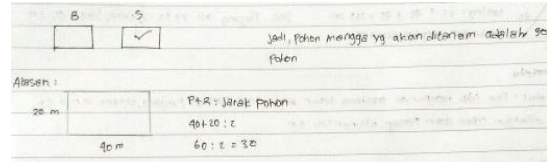 B S
✓
Jadi, Pohon mangga yg akan ditanam adalah
Pohon
Alasan :
20 m
P+L : Jarak Pohon
40+20 : 2
40 m
60 : 2 = 30